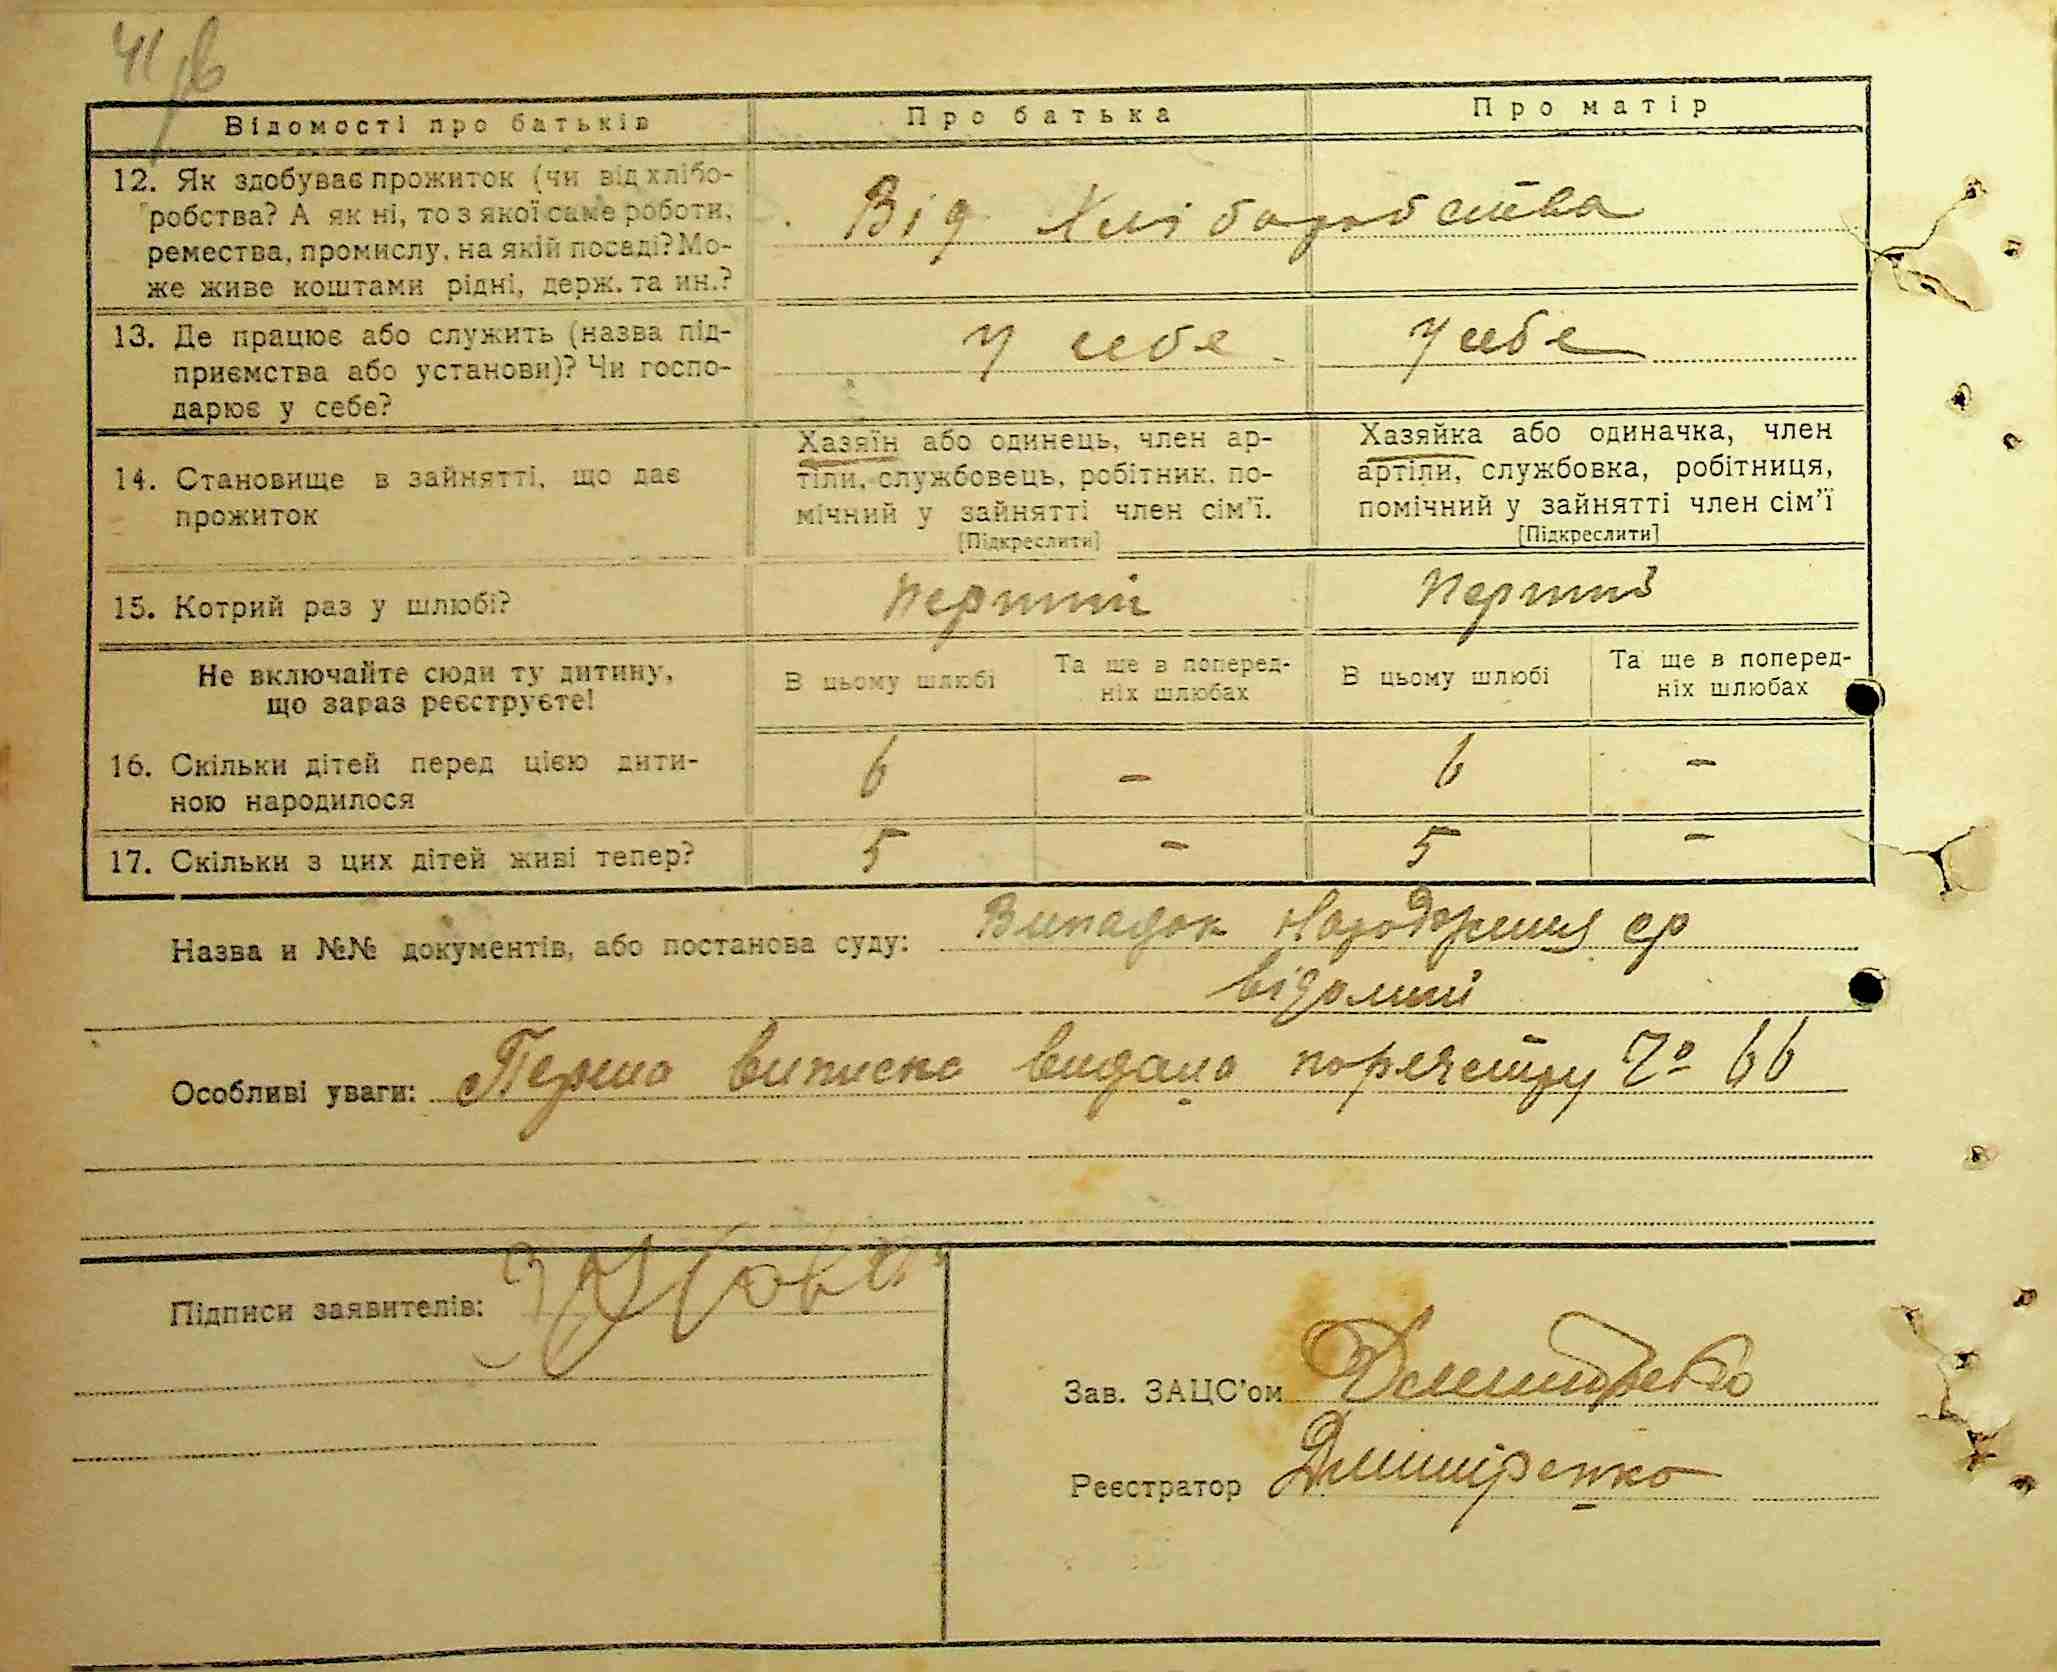 41
Відомості про батьків Про батька Про матір
12. Як здобуває прожиток (чи від хлібо-
робства? А як ні, то з якої саме роботи,
ремества, промислу, на якій посаді? Мо-
же живе коштами рідні, держ. та ин.?
Від Хліборобства
13. Де працює або служить (назва під-
приємства або установи)? Чи госпо-
дарює у себе?
У себе У себе
14. Становище в зайнятті, що дає
прожиток
Хазяїн або одинець, член ар-
тіли, службовець, робітник, по-
мічний у зайнятті член сім'ї.
[Підкреслити]
Хазяйка або одиначка, член
артіли, службовка, робітниця,
помічний у зайнятті член сім'ї
[Підкреслити]
15. Котрий раз у шлюбі? перший перший
Не включайте сюди ту дитину,
що зараз реєструєте!
В цьому шлюбі
Та ще в поперед-
ніх шлюбах
В цьому шлюбі
Та ще в поперед-
ніх шлюбах
16. Скільки дітей перед цією дити-
ною народилося
6 - 6 -
17. Скільки з цих дітей живі тепер? 5 - 5 -
Назва и №№ документів, або постанова суду: Випадок народження ср
відомий
Особливі уваги: Перша виписка видана пореястру № 66
Підписи заявителів:
Зав. ЗАЦС'ом
Реєстратор Дмитренко